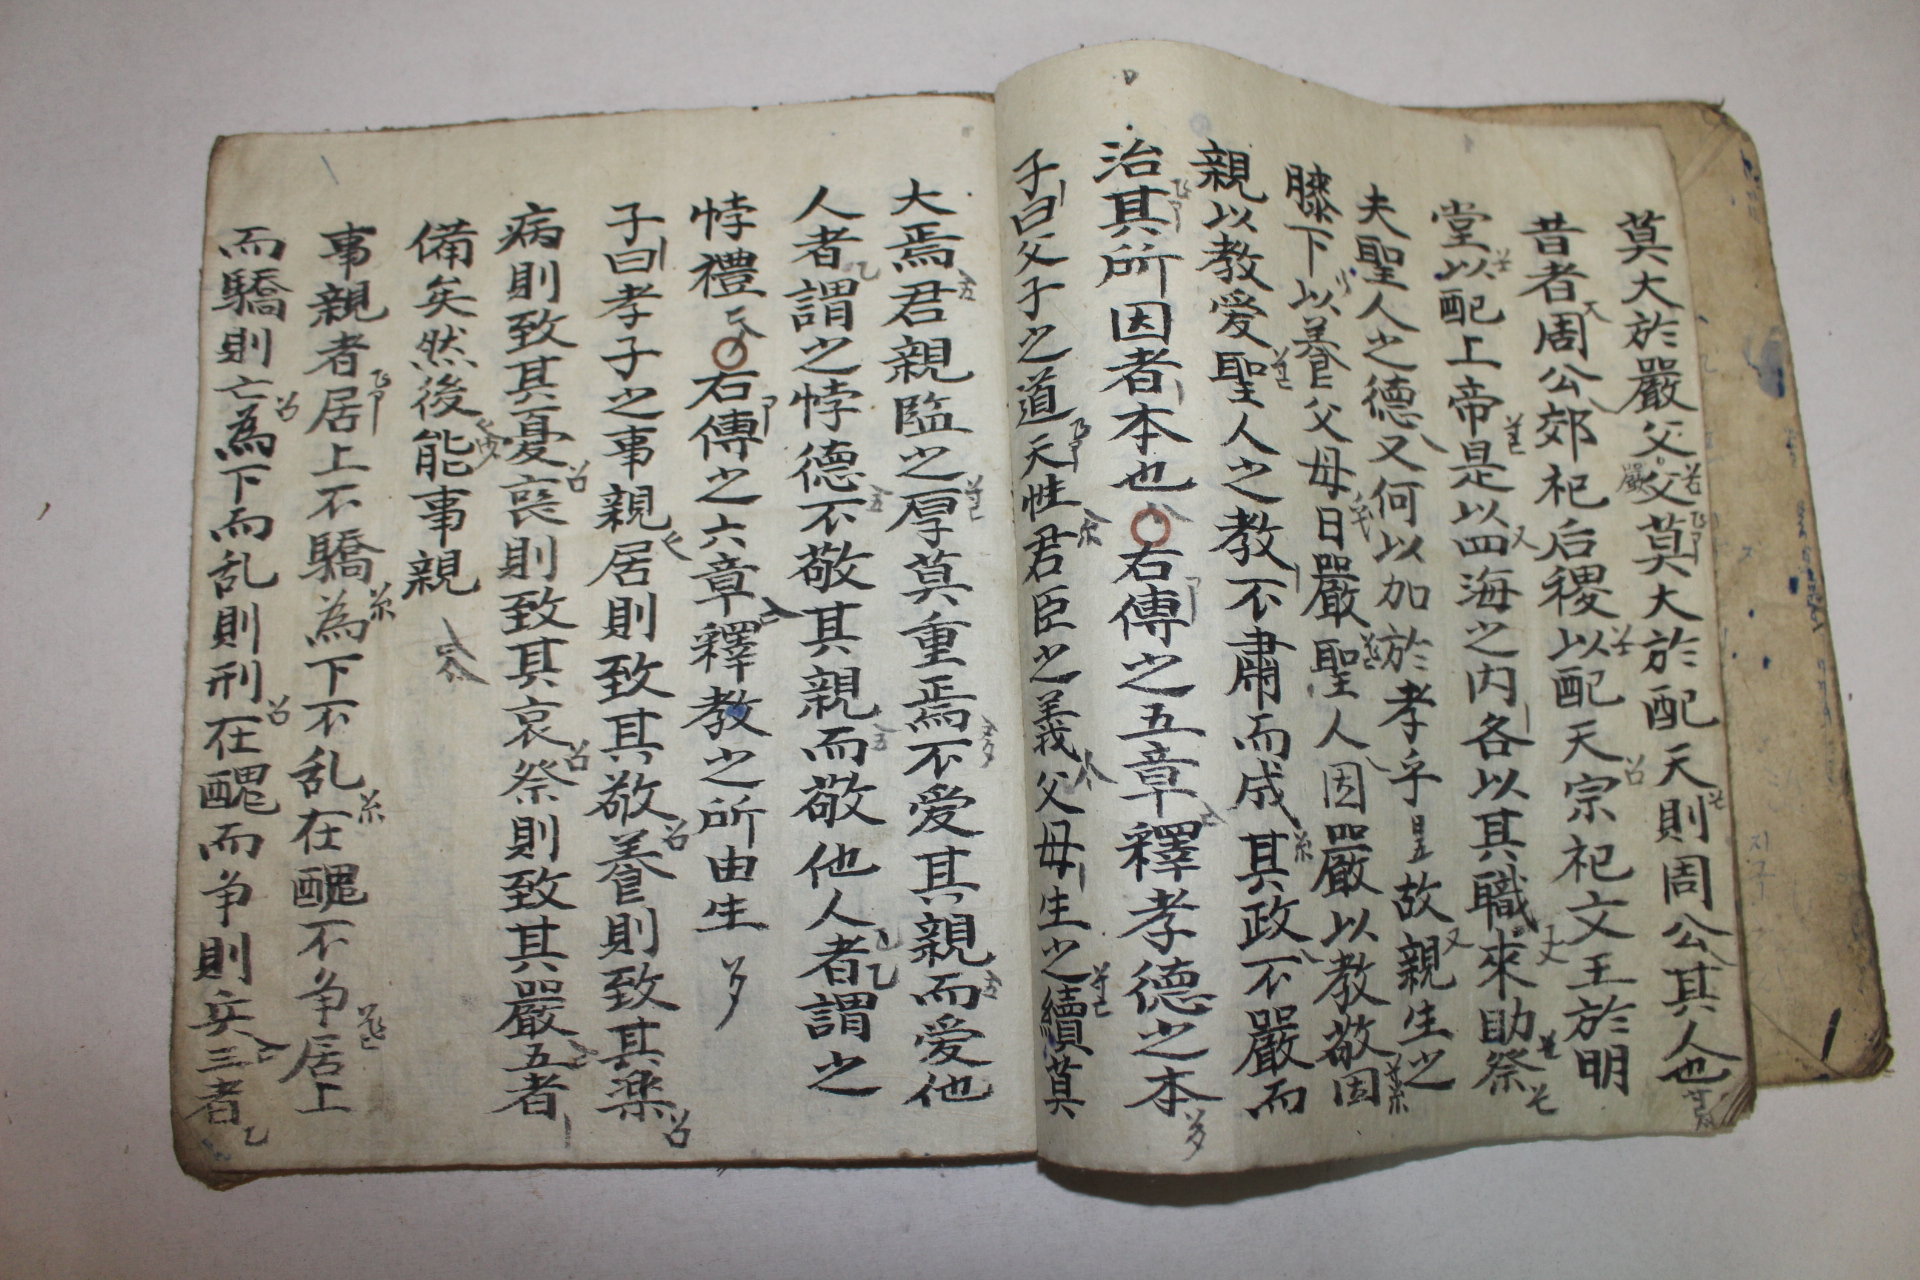 莫大於嚴父嚴父莫大於配天則周公其人也
昔者周公郊祀后稷以配天宗祀文王於明
堂以配上帝是以四海之内各以其職來助祭
夫聖人之德又何以加於孝乎是故親生之
膝下以養父母日嚴聖人因嚴以教敬因
親以教爱聖人之教不肅而成其政不嚴而
治其所因者本也〇右傳之五章釋孝德之本
子曰父子之道天性君臣之義父母生之續莫
大焉君親臨之厚莫重焉不爱其親而爱他
人者謂之悖德不敬其親而敬他人者謂之
悖禮〇右傳之六章釋教之所由生
子曰孝子之事親居則致其敬養則致其楽
病則致其憂喪則致其哀祭則致其嚴五者
備矣然後能事親
事親者居上不驕為下不乱在醜不争居上
而驕則亡為下而乱則刑在醜而争則兵三者